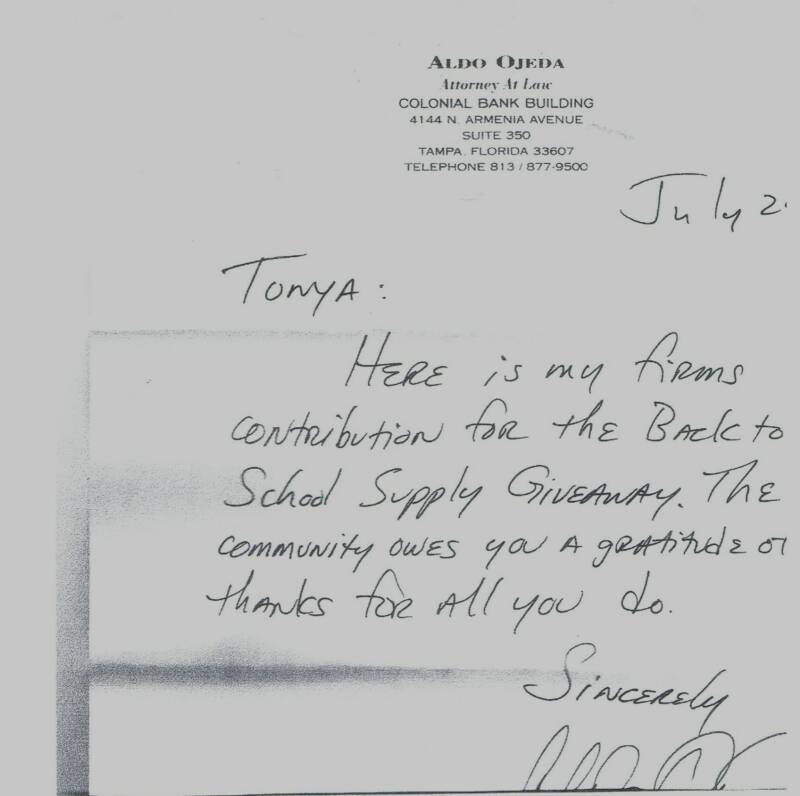 ALDO OJEDA
Attorney At Law
COLONIAL BANK BUILDING
4144 N. ARMENIA AVENUE
SUITE 350
TAMPA, FLORIDA 33607
TELEPHONE 813 / 877-9500
July 2
TONYA:
HERE is my firms
contribution for the Back to
School Supply Giveaway. The
community owes you a gratitude of
thanks for all you do.
Sincerely